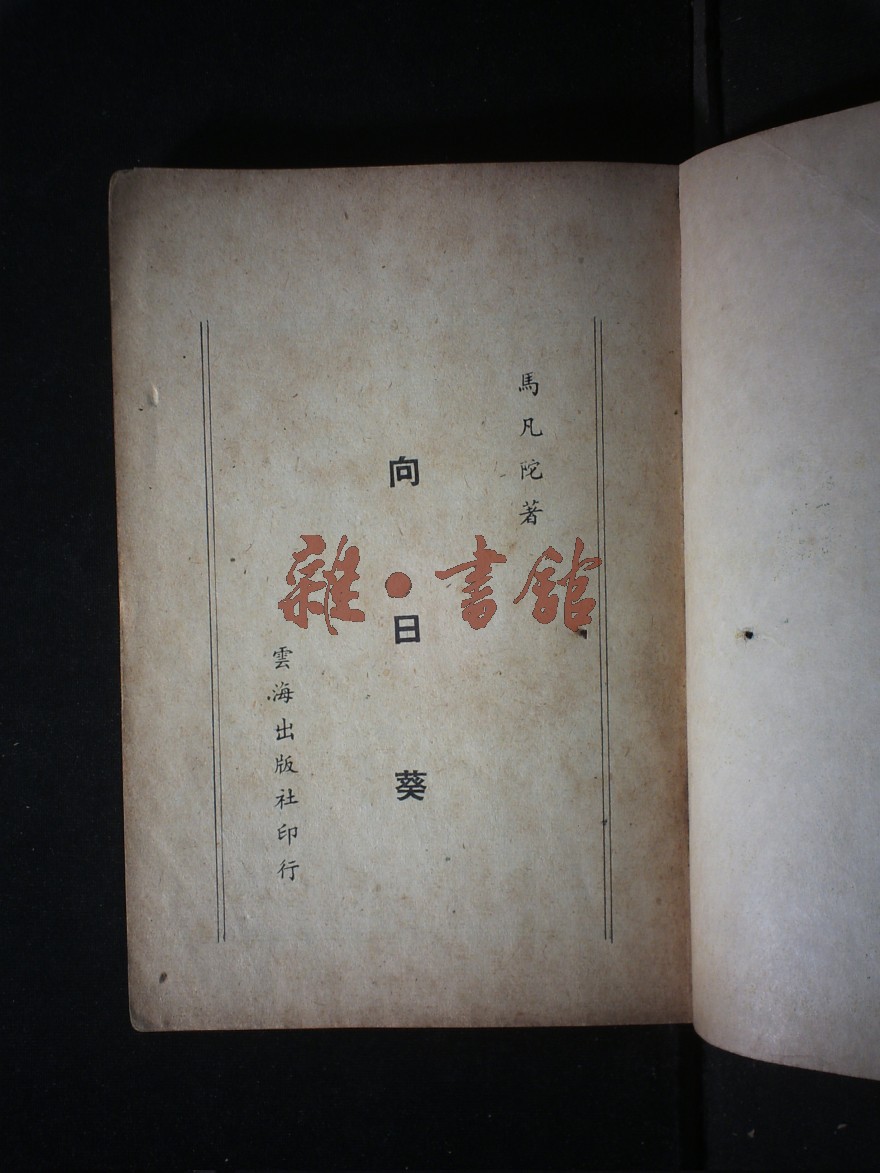 馬凡陀著
向日葵
雲海出版社印行
雜·書館